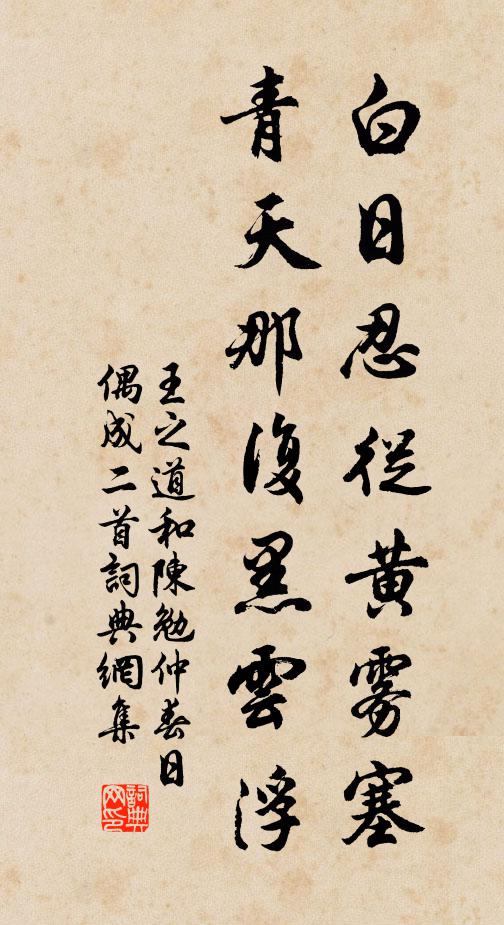 白日忍從黃雾塞
青天那復黑雲浮
王之道和陳勉仲春日
偶成二首詞典網集
詞典
网印